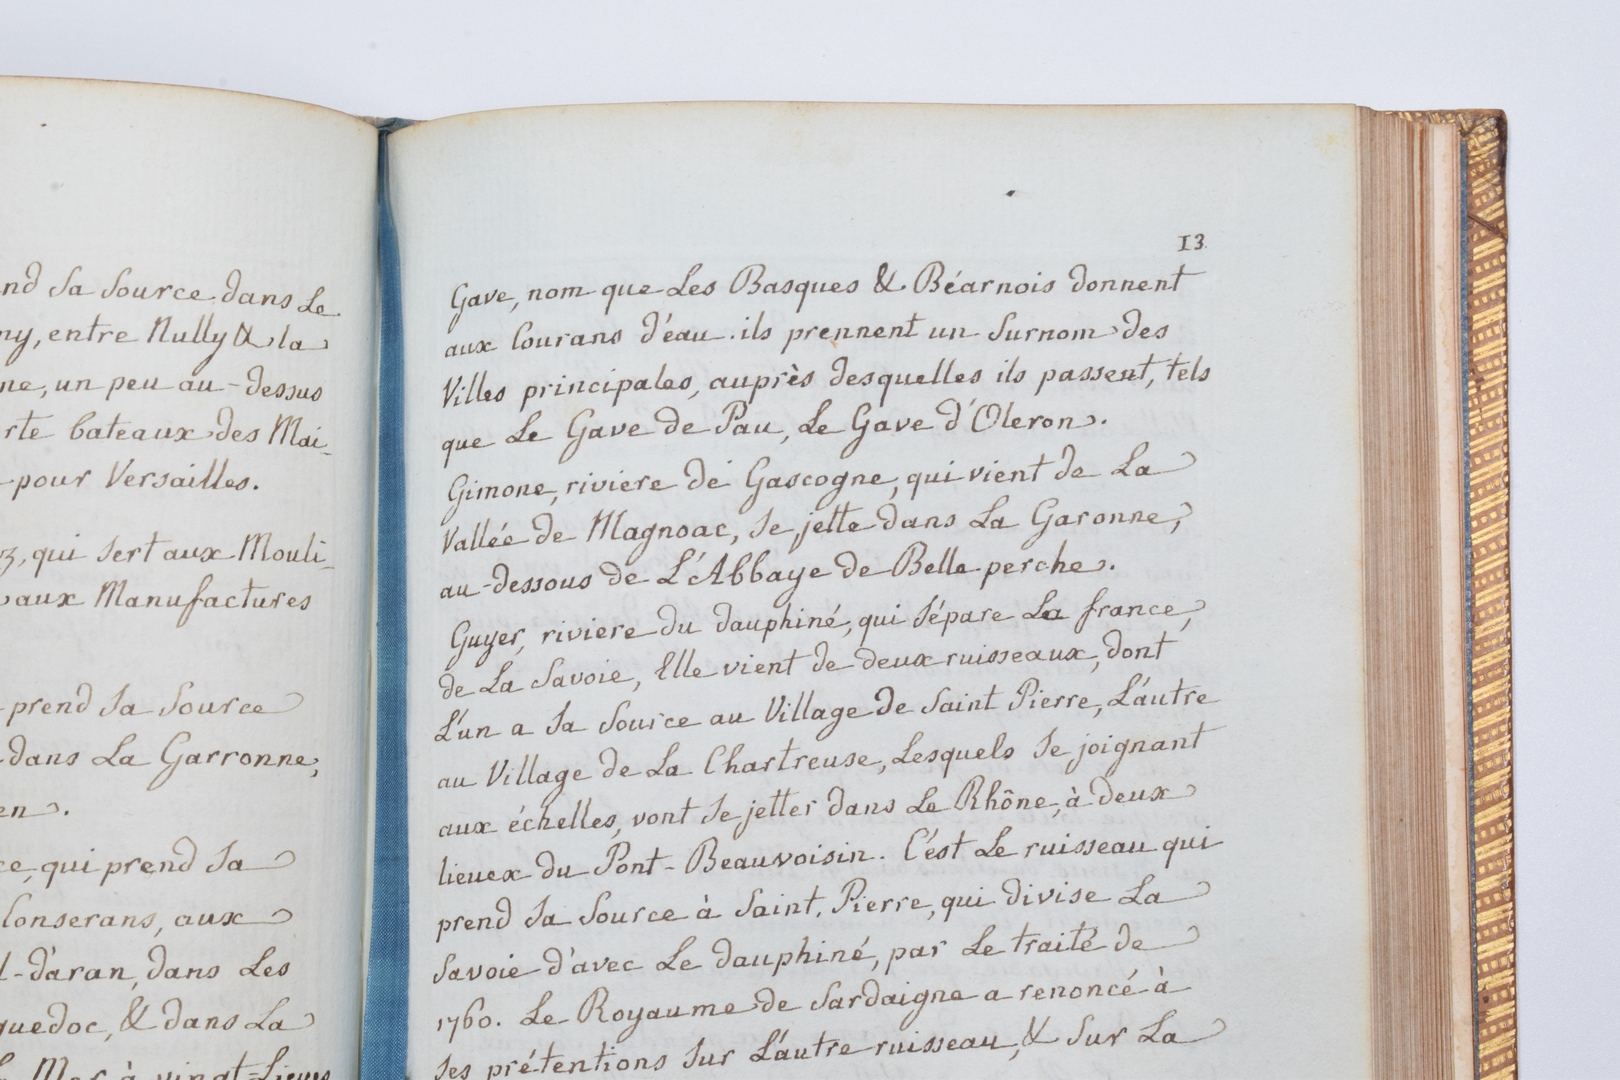 nd sa source dans Le
ny, entre Nully & la
ne, un peu au-dessus
rte bateaux des Mai-
pour Versailles.
3, qui sert aux Mouli-
aux Manufactures
prend sa source
dans La Garronne,
en.
ce, qui prend sa
Conserans, aux
l-d'aran, dans Les
guedoc, & dans La
Mer à vingt-Lieues
13
Gave, nom que Les Basques & Béarnois donnent
aux Courans d'eau. ils prennent un surnom des
Villes principales, auprès desquelles ils passent, tels
que Le Gave de Pau, Le Gave d'Oleron.
Gimone, riviere de Gascogne, qui vient de La
Vallée de Magnoac, se jette dans La Garonne,
au-dessous de L'Abbaye de Belle-perche.
Guyer, riviere du dauphiné, qui sépare La france,
de La Savoie, Elle vient de deux ruisseaux, dont
L'un a sa source au Village de Saint Pierre, L'autre
au Village de La Chartreuse, Lesquels se joignant
aux échelles, vont se jetter dans Le Rhône, à deux
lieuex du Pont-Beauvoisin. C'est Le ruisseau qui
prend sa source à Saint. Pierre, qui divise La
Savoie d'avec Le dauphiné, par Le traité de
1760. Le Royaume de Sardaigne a renoncé à
ses prétentions sur L'autre ruisseau, & sur La